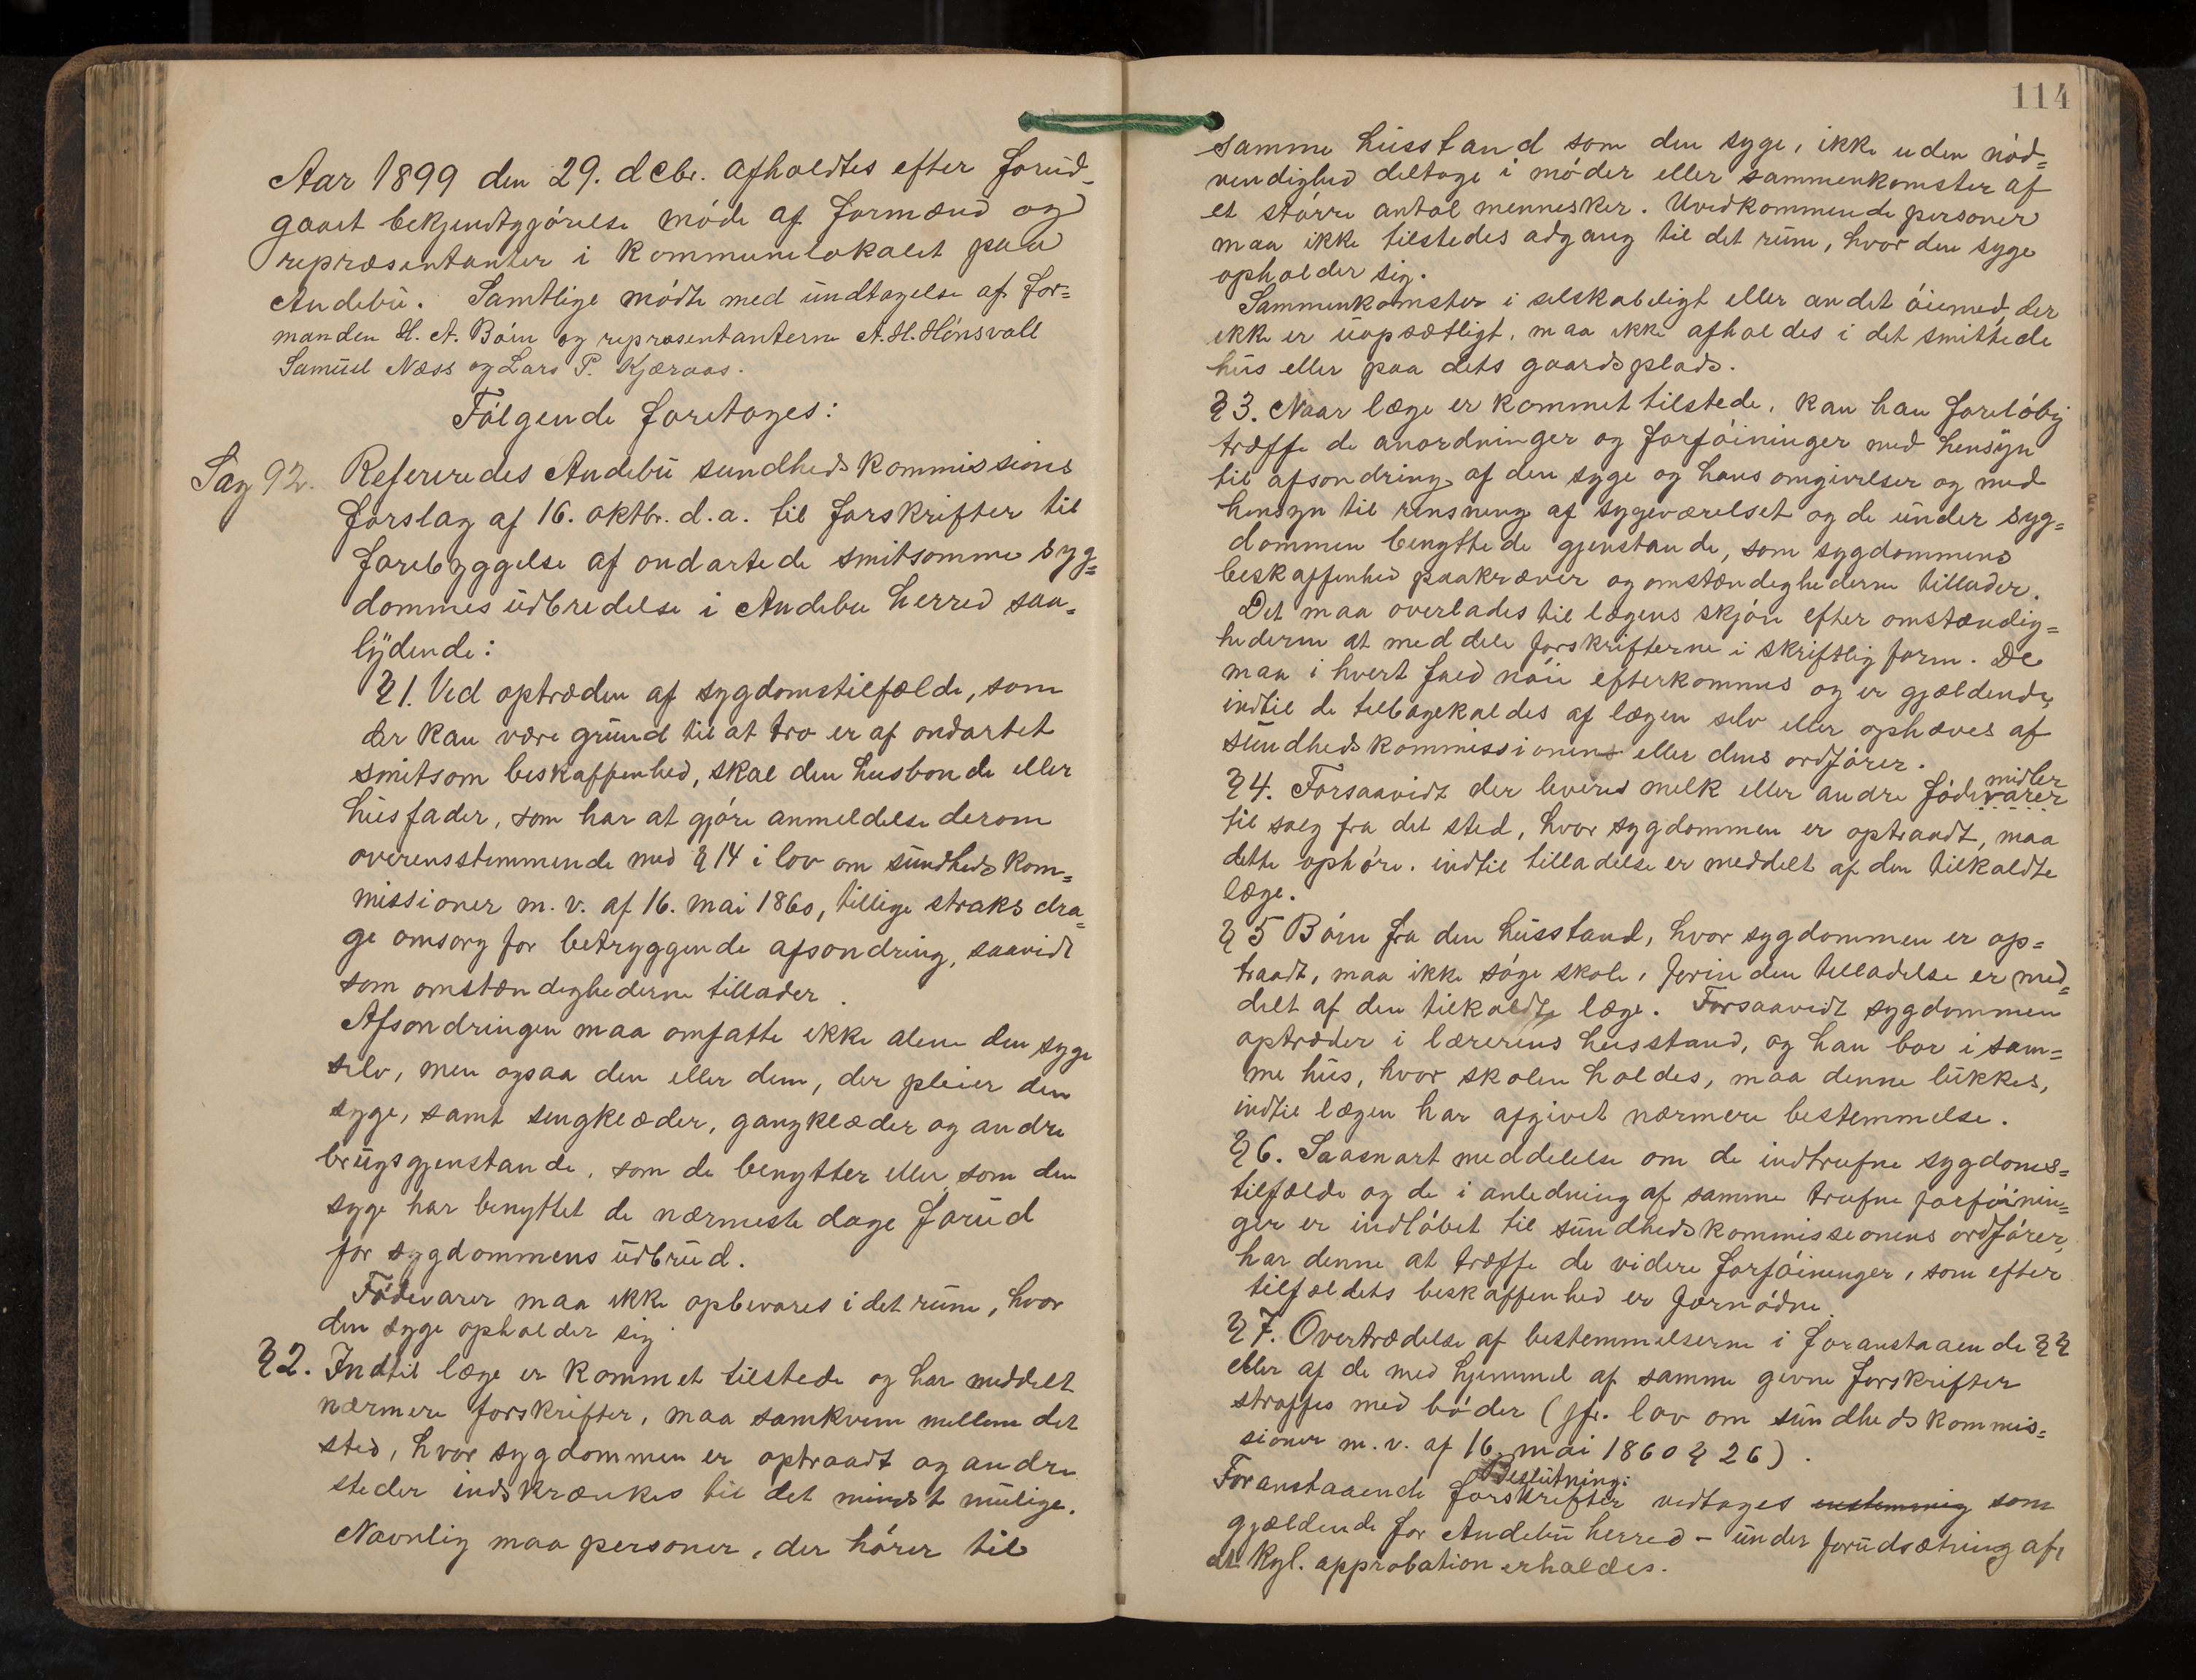 Aar 1899 den 29. decbr. afholdtes efter forud-
gaaet bekjendtgjörelse möde af formænd og
repræsentanter i kommunelokalet paa
Andebu. Samtlige mödte med undtagelse af for=
manden H. A. Böin og repræsentanterne A. H. Hönsvall
Samuel Næss og Lars P. Kjæraas.
Fölgende foretoges:
Sag 92. Refereredes Andebu sundhedskommissions
forslag af 16. oktbr. d.a. til forskrifter til
forebyggelse af ondartede smitsomme syg=
dommes udbredelse i Andebu herred saa=
lydende:
§ 1. Ved optræden af sygdomstilfælde, som
der kan være grund til at tro er af ondartet
smitsom beskaffenhed, skal den husbonde eller
husfader, som har at gjöre anmeldelse derom
overensstemmende med § 14 i lov om sundhedskom=
missioner m. v. af 16. mai 1860, tillige straks dra=
ge omsorg for betryggende afsondring, saavidt
som omstændighederne tillader.
Afsondringen maa omfatte ikke alene den syge
selv, men ogsaa den eller dem, der pleier den
syge, samt sengklæder, gangklæder og andre
brugsgjenstande, som de benytter eller som den
syge har benyttet de nærmeste dage forud
for sygdommens udbrud.
Födevarer maa ikke opbevares i det rum, hvor
den syge opholder sig
§ 2. Indtil læge er kommet tilstede og har meddelt
nærmere forskrifter, maa samkvem mellem det
sted, hvor sygdommen er optraadt og andre
steder indskrænkes til det mindst mulige.
Navnlig maa personer, der hörer til
114
samme husstand som den syge, ikke uden nöd=
vendighed deltage i möder eller sammenkomster af
et större antal mennesker. Uvedkommende personer
maa ikke tilstedes adgang til det rum, hvor den syge
opholder sig.
Sammenkomster i selskabeligt eller andet öiemed, der
ikke er uopsætligt, maa ikke afholdes i det smittede
hus eller paa dets gaardsplads.
§ 3. Naar læge er kommet tilstede, kan han forelöbig
træffe de anordninger og forföininger med hensyn
til afsondring af den syge og hans omgivelser og med
hensyn til rensning af sygeværelset og de under syg=
dommen benyttede gjenstande, som sygdommens
beskaffenhed paakræver og omstændighederne tillader.
Det maa overlades til lægens skjön efter omstændig=
hederne at meddele forskrifterne i skriftlig form. De
maa i hvert fald nöie efterkommes og er gjældende,
indtil de tilbagekaldes af lægen selv eller ophæves af
sundhedskommissionen eller dens ordförer.
§ 4. Forsaavidt der leveres melk eller andre födevarer
midler
til salg fra det sted, hvor sygdommen er optraadt, maa
dette ophöre, indtil tilladelse er meddelt af den tilkaldte
læge.
§ 5 Börn fra den husstand, hvor sygdommen er op=
traadt, maa ikke söge skole, forinden tilladelse er med=
delt af den tilkaldte læge. Forsaavidt sygdommen
optræder i lærerens husstand, og han bor i sam=
me hus, hvor skolen holdes, maa denne lukkes,
indtil lægen har afgivet nærmere bestemmelse.
§ 6. Saasnart meddelelse om de indtrufne sygdoms=
tilfælde og de i anledning af samme trufne forföinin=
ger er indlöbet til sundhedskommissionens ordförer,
har denne at træffe de videre forföininger, som efter
tilfældets beskaffenhed er fornödne.
§ 7. Overtrædelse af bestemmelserne i foranstaaende §§
eller af de med hjemmel af samme givne forskrifter
straffes med böder (jfr. lov om sundhedskommis=
sioner m. v. af 16. mai 1860 § 26).
Beslutning:
Foranstaaende forskrifter vedtages enstemmig som
gjældende for Andebu herred – under forudsætning af,
at kgl. approbation erholdes.